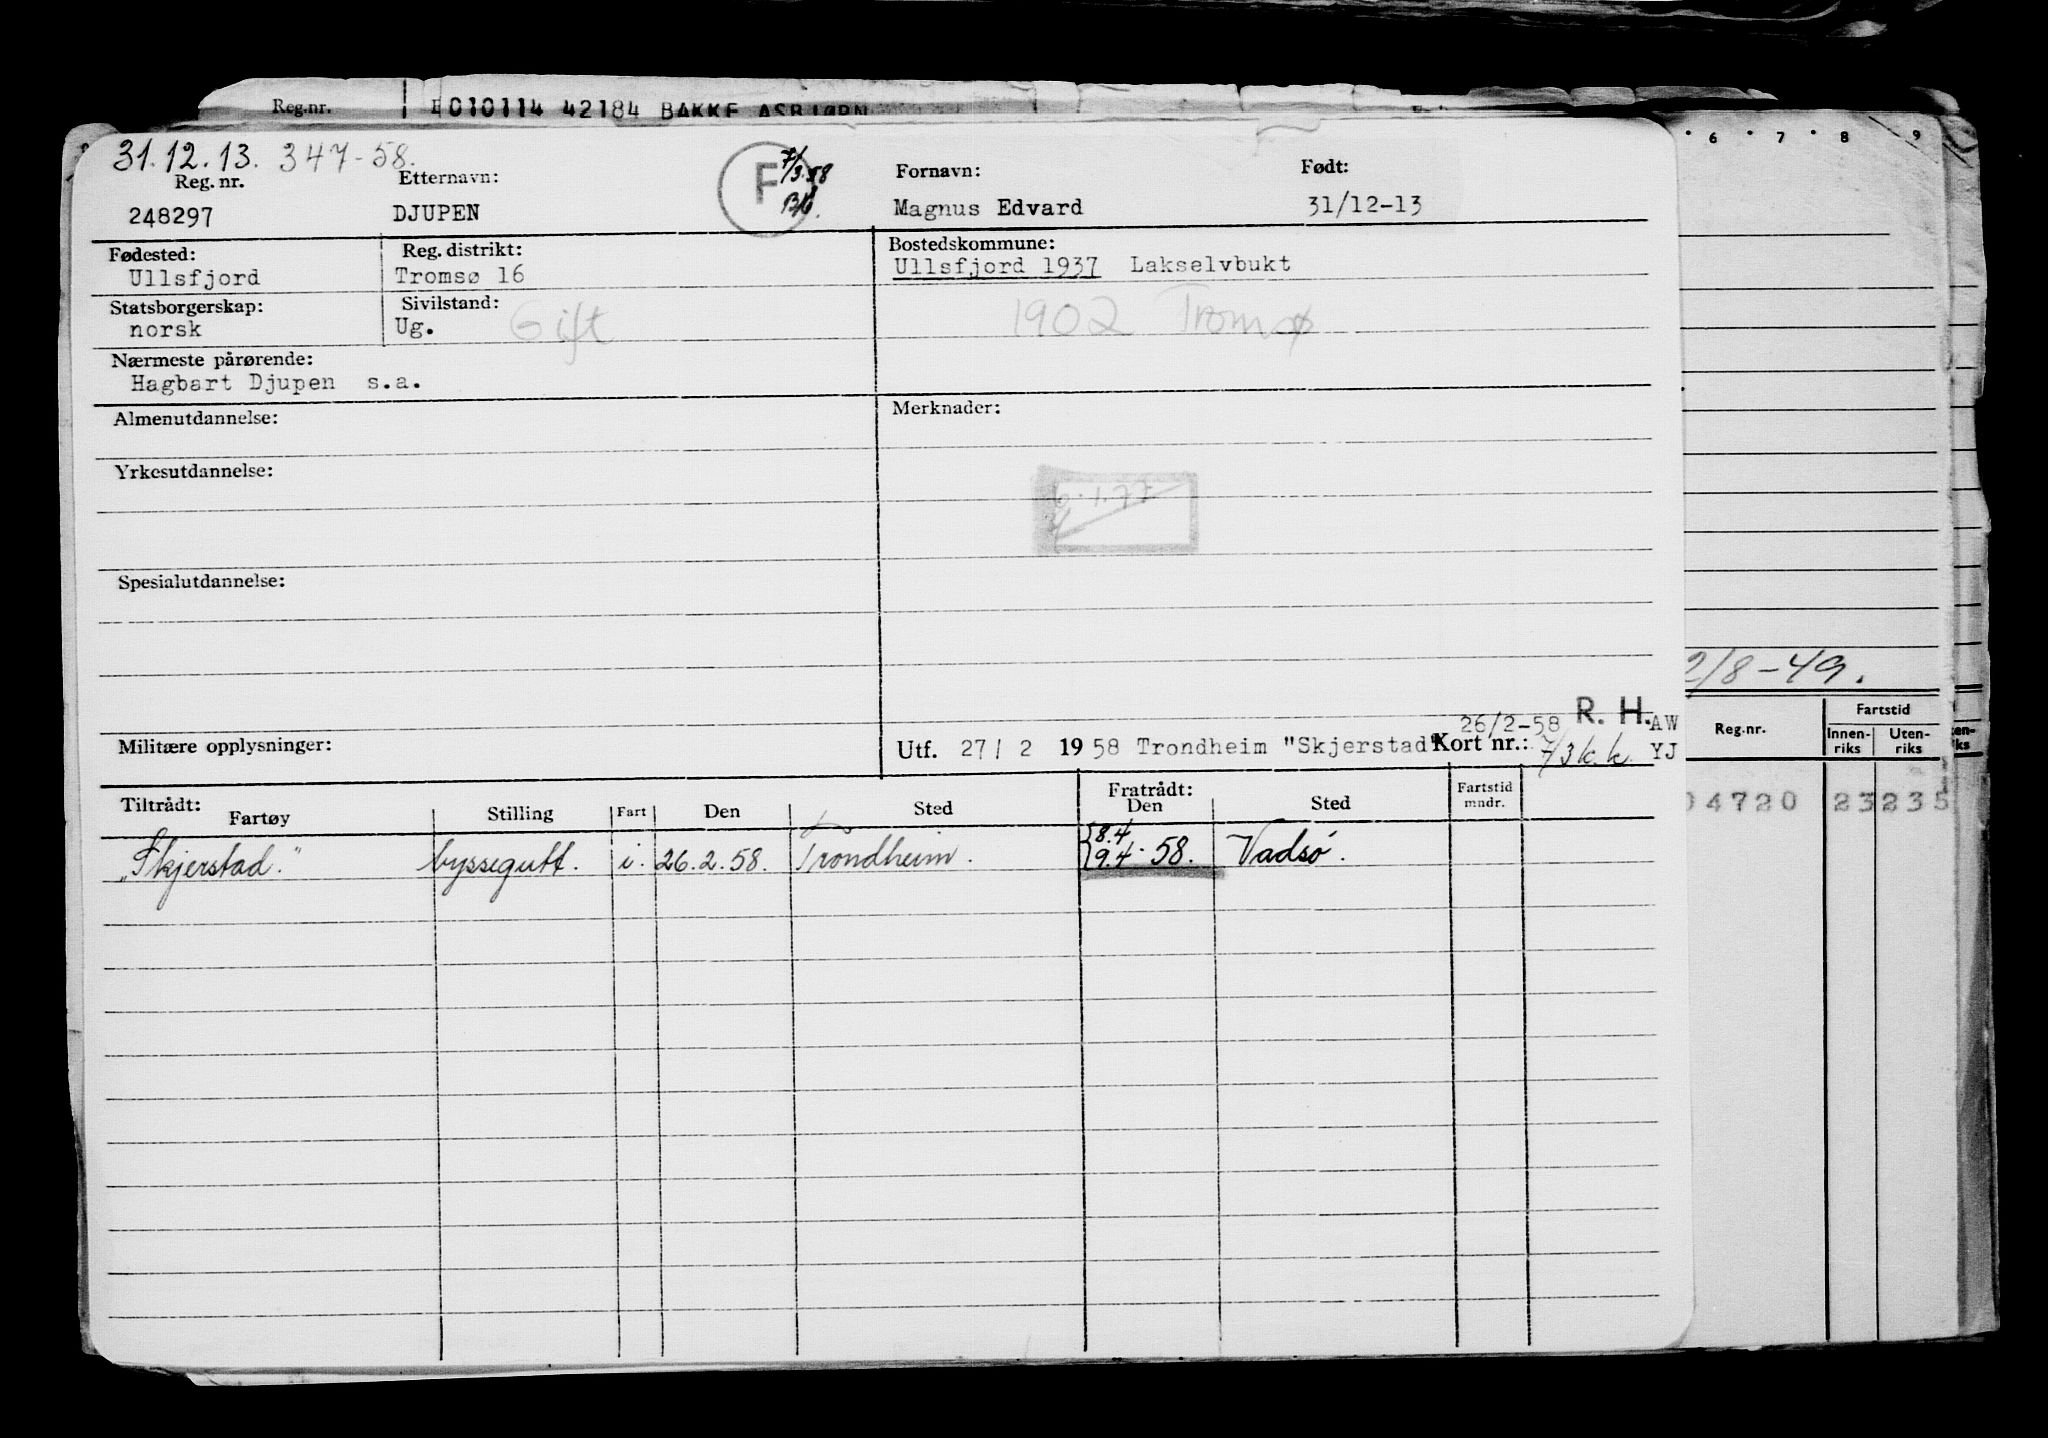 Reg.nr. 010114 42184 BAKKE ASBJØRN
6 7 8 9
31.12.13. 347-58.
Reg. nr. Etternavn: F 7/3.58 Fornavn: Født:
248297 DJUPEN Magnus Edvard 31/12-13
Fødested: Reg. distrikt: Bostedskommune:
Ullsfjord Tromsø 16 Ullsfjord 1937 Lakselvbukt
Statsborgerskap: Sivilstand:
norsk Ug. Gift 1902 Tromsø
Nærmeste pårørende:
Hagbart Djupen s.a.
Almenutdannelse: Merknader:
Yrkesutdannelse:
6.1.77
Spesialutdannelse:
2/8-49.
26/2-58 R. H. AW
Militære opplysninger: Utf. 27/ 2 1958 Trondheim "Skjerstad" Kort nr.: 7/3 k.k. YJ
Reg.nr. Fartstid
Innen-riks Uten-riks
04720 23 235
Tiltrådt: Fratrådt: Fartstid
Fartøy Stilling Fart Den Sted Den Sted mndr.
8.4
"Skjerstad." byssegutt. i. 26.2.58. Trondheim. 9.4.58. Vadsø.